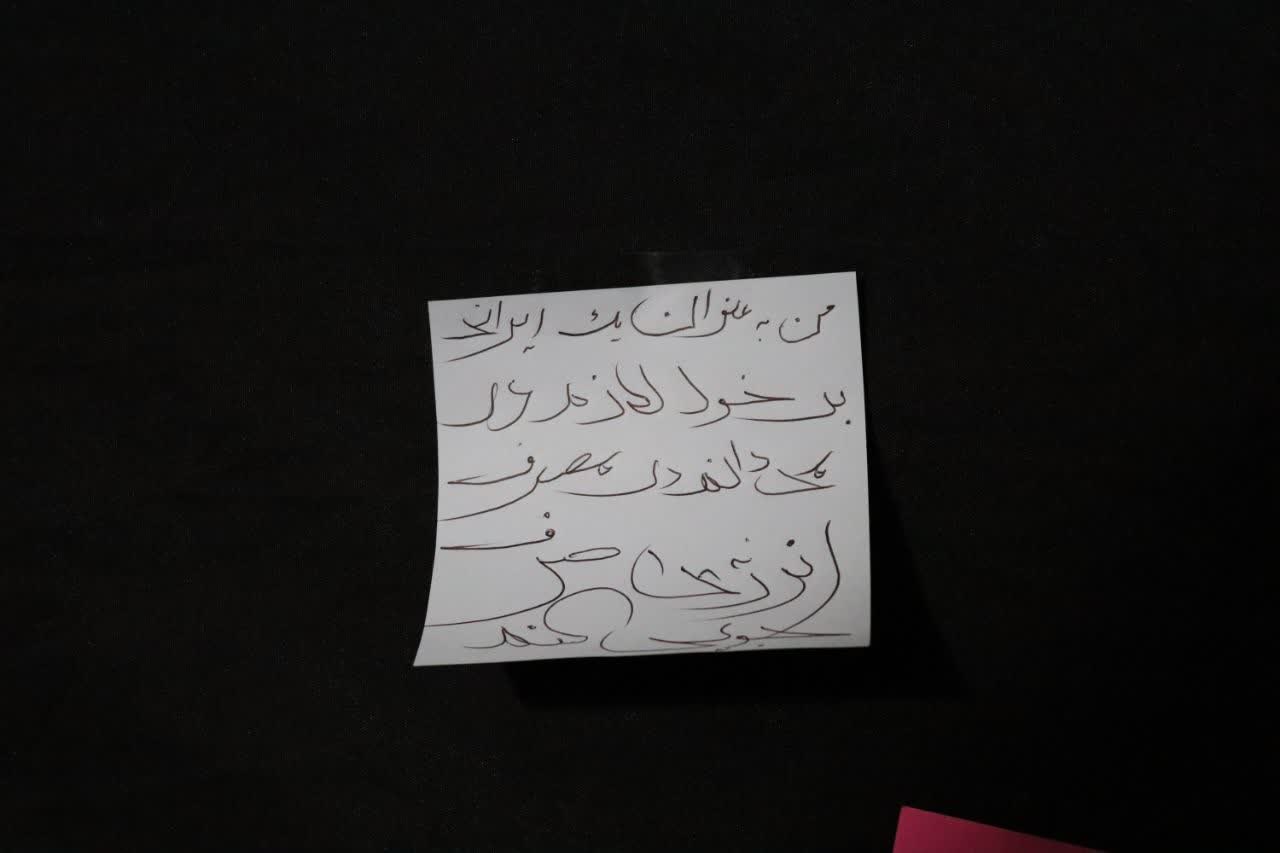 من به عنوان یک ایرانی
بر خود لازم
می‌داند در مصرف
انرژی صرف
جویی کند